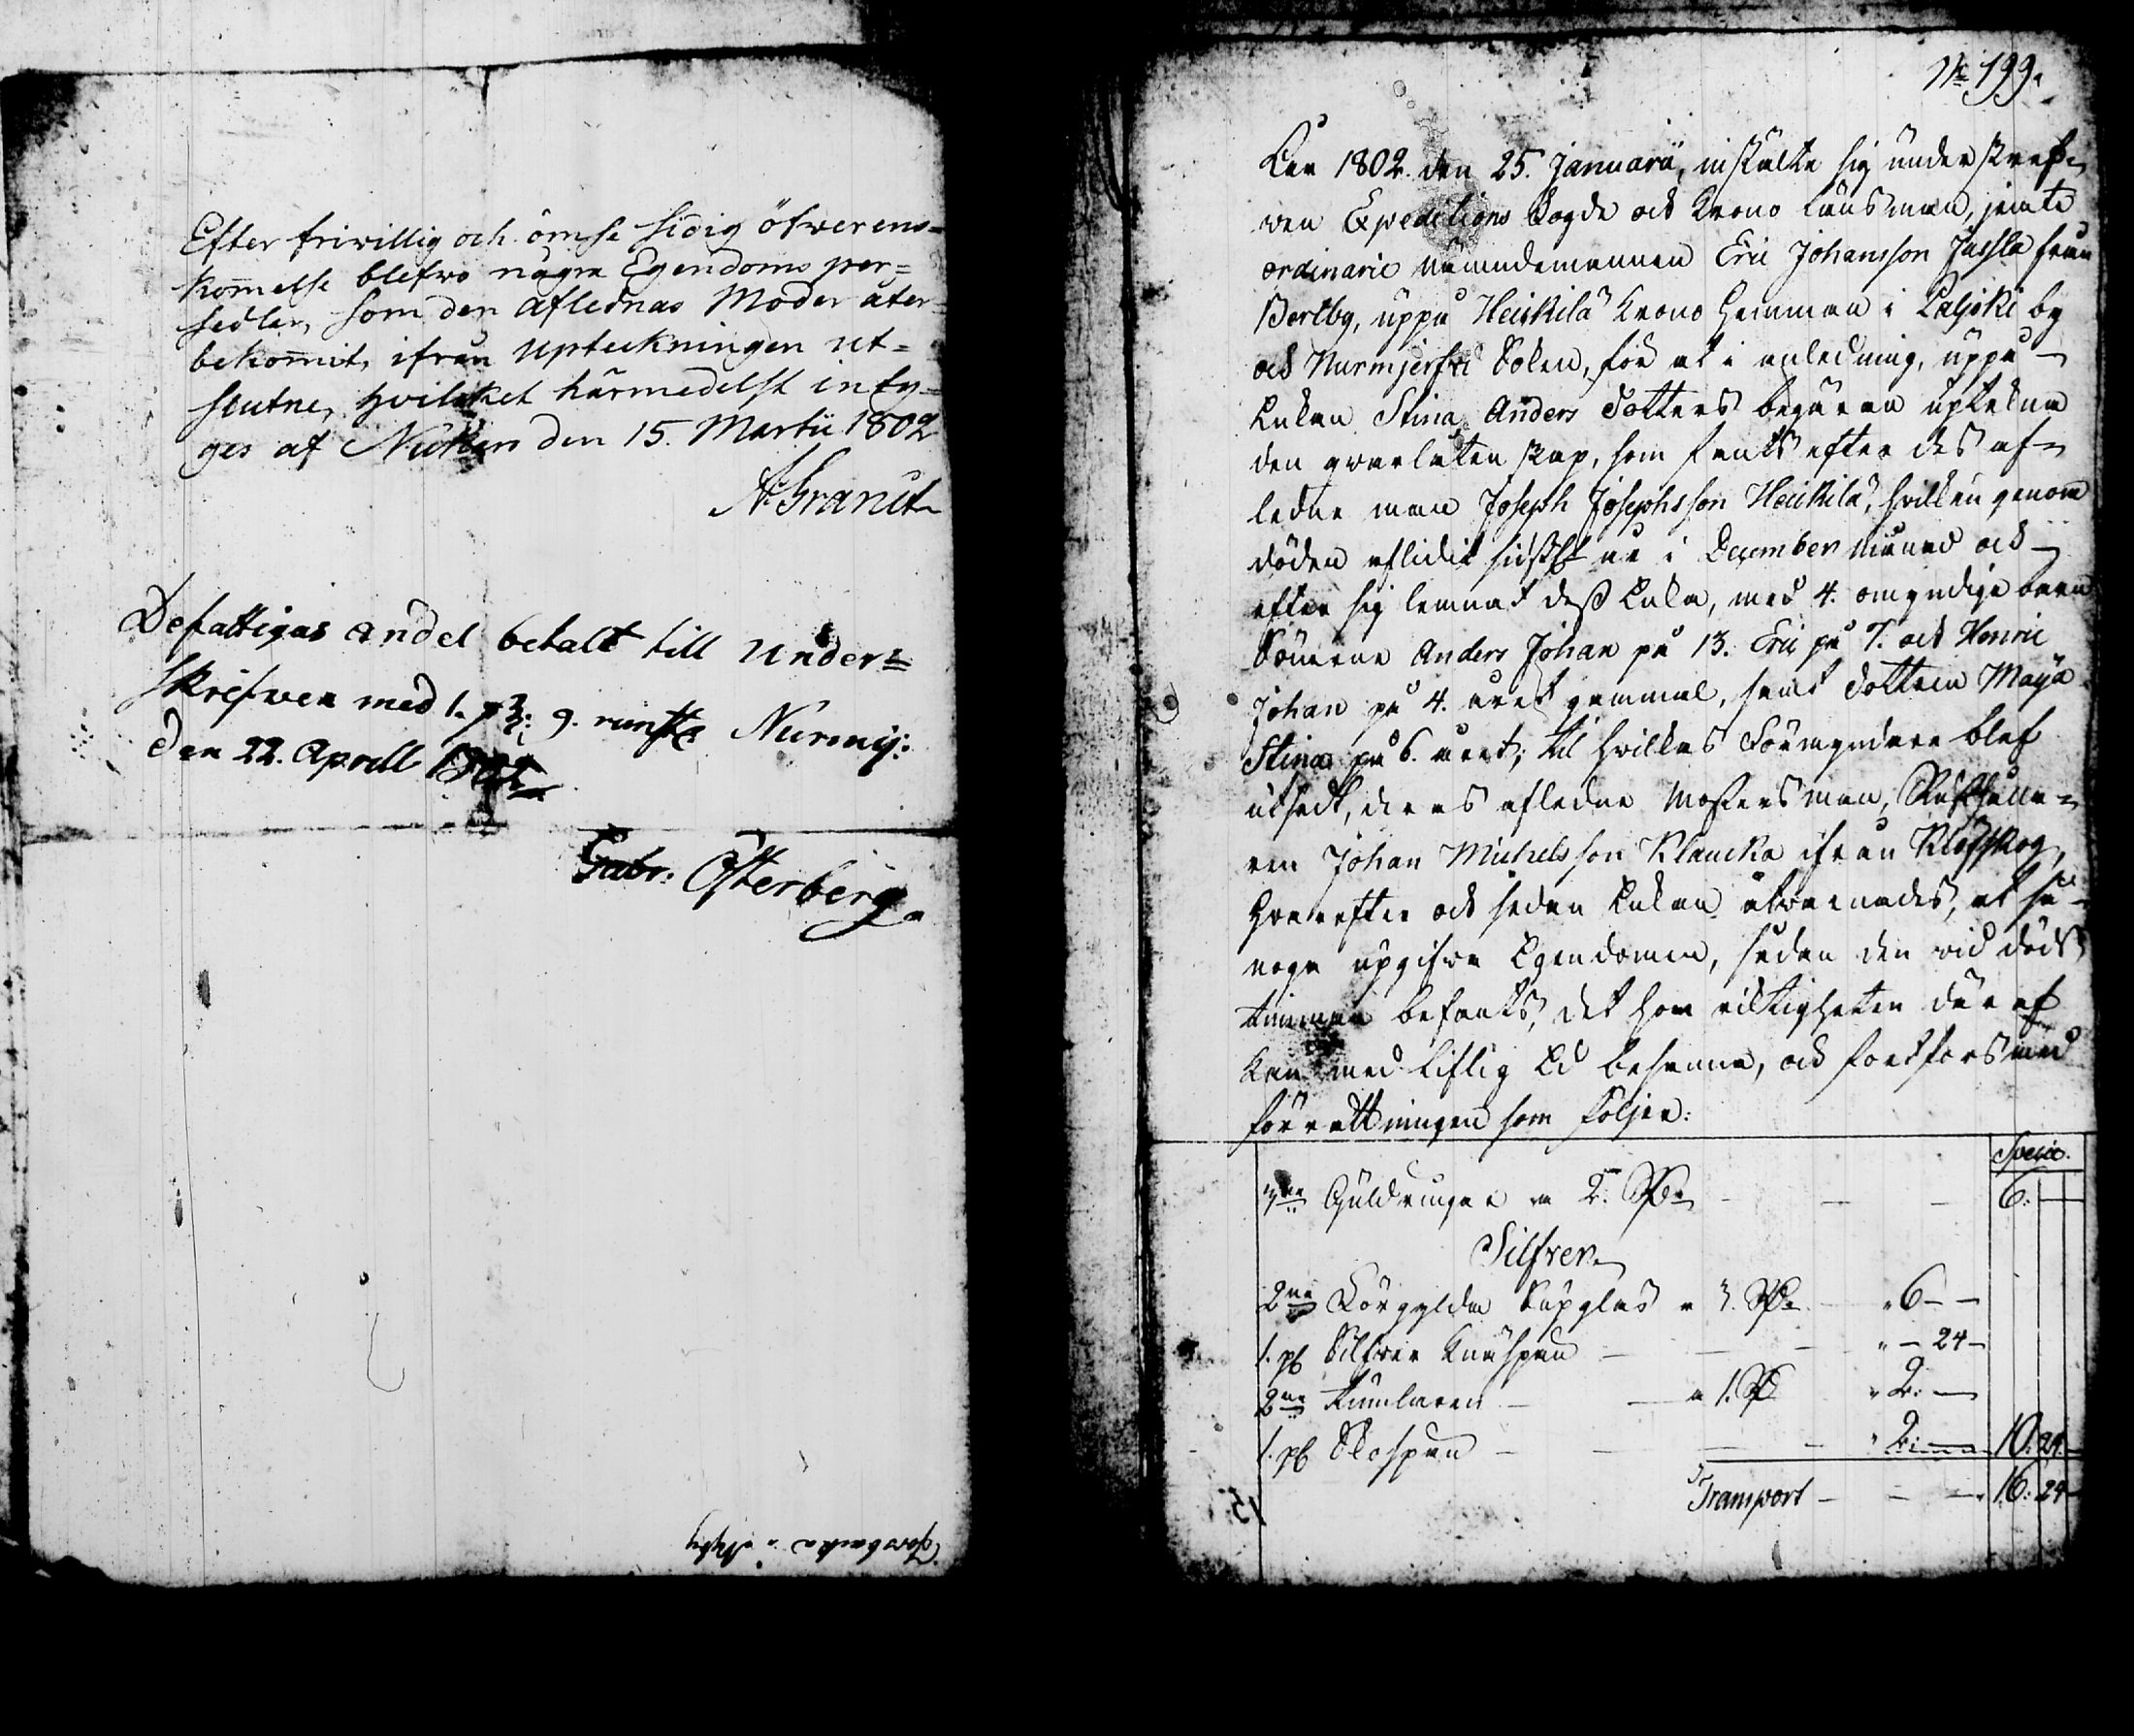 Efter friwillig och ömse sidig öfwerens=
kommelse blefwo några Egendoms per=
sedler, som den aflednas Moder åter
bekommit, ifrån Upteckningen ut=
slutne, hvilcket härmedelst inty=
gas af Nicken den 15. Martii 1802
A. Granit
De fattigas andel betalt till Under=
skrefwen med 1. 9. runst. Nurmij:
den 22. Aprill
Gabr: Österberg
Forsbacka i Nyby
No 199.
Åhr 1802. den 25. Januarii, instälte sig underskref=
wen Expeditions Fogde och Krono Länsman, jemte
ordinarie nämndemannen Eric Johansson Jussla från
Bertby, uppå Heickilä Krono Hemman i Paljoki by
och Nurmjerfvi Sokn, för at i anledning, uppå
Enkan Stina Anders Dotters begäran upteckna
den qwarlåtenskap, som fants efter des af=
ledne man Joseph Josephsson Heickilä, hvilken genom
döden aflidit sidstl. i December månad och
efter sig lemnat dess Enka, med 4. omyndige barn
Sönerne Anders Johan på 13. Eric på 7. och Henric
Johan på 4. året gammal, samt dottren Maja
Stina på 6. året; til hvilkas Förmyndare blef
utsedt, deras afledne Mosters man, Rusthålla=
ren Johan Michelsson Klaucka ifrån Klöfskog,
Hvarefter och sedan Enkan åtwarnades, at så
noga upgifwa Egendomen, sådan den wid döds
timman befants, det hon riktigheten däraf
kan med liflig Ed besanna, och fortfors med
förrättningen som följer:
Specie.
3ne Guldringar a 2. Rd 6:
Silfver
2ne Förgylda Supglas a 3. Rd " 6 — —
1. pr Silfver Knäspän " — 24 —
2ne Tumlare a 1. Rd " 2: —
1. pr Skospän " 2: — 10: 24 —
Transport 16: 24 —